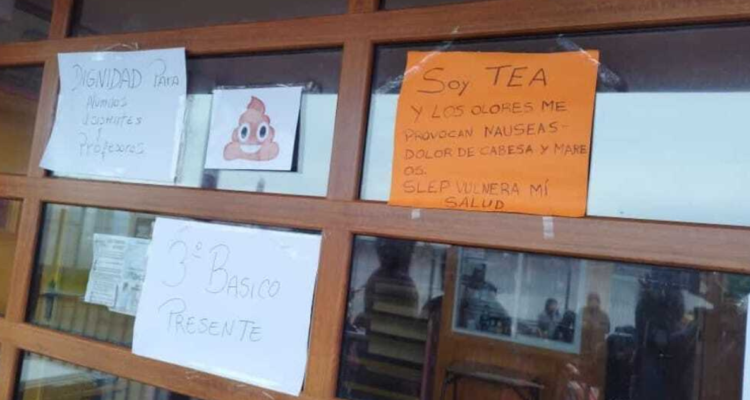 DIGNIDAD PARA
NIÑOS
ASISTENTES
Y
PROFESORES
SOY TEA
Y LOS OLORES ME
PROVOCAN NAUSEAS-
DOLOR DE CABESA Y MARE
OS.
SLEP VULNERA MÍ
SALUD
3º BASICO
PRESENTE